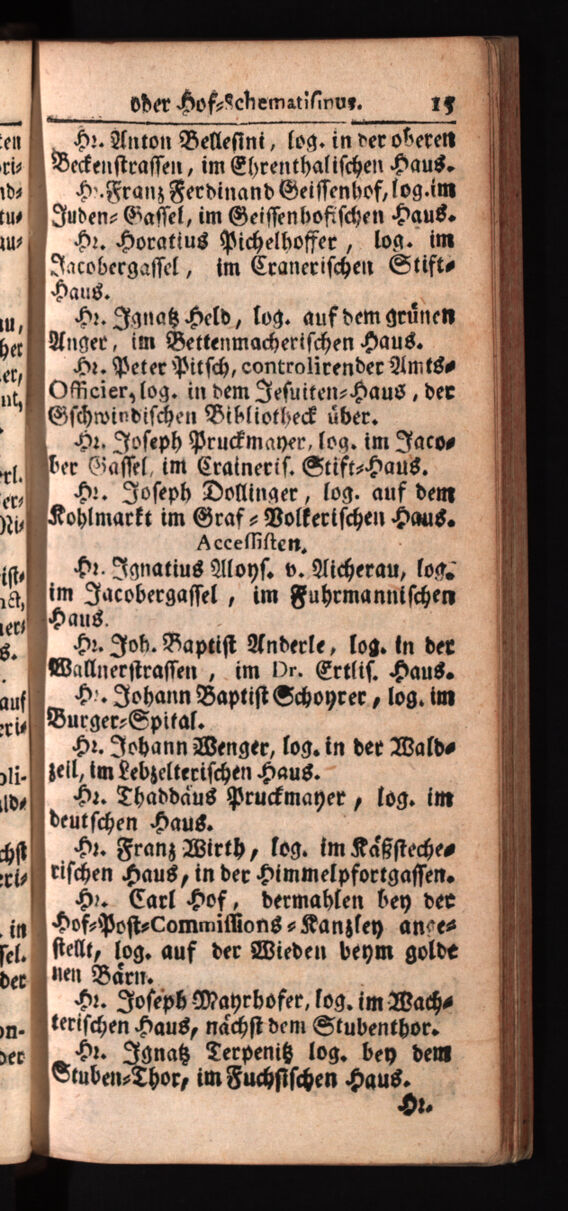 oder Hof-Schematismus. 15
Hr. Anton Bellesini, log. in der oberen
Beckenstrassen, im Ehrenthalischen Haus.
Hr. Franz Ferdinand Geissenhof, log. im
Juden-Gassel, im Geissenhofischen Haus.
Hr. Horatius Pichelhoffer, log. im
Jacobergassel, im Cranerischen Stift-
Haus.
Hr. Ignatz Held, log. auf dem grünen
Anger, im Bettenmacherischen Haus.
Hr. Peter Pitsch, controlirender Amts-
Officier, log. in dem Jesuiten-Haus, der
Gschwindischen Bibliotheck über.
Hr. Joseph Pruckmayer, log. im Jaco-
ber Gassel, im Craineris. Stift-Haus.
Hr. Joseph Dollinger, log. auf dem
Kohlmarkt im Graf-Volkerischen Haus.
Accessisten.
Hr. Ignatius Aloys. v. Aicherau, log.
im Jacobergassel, im Fuhrmannischen
Haus.
Hr. Joh. Baptist Anderle, log. in der
Wallnerstrassen, im Dr. Ertlis. Haus.
Hr. Johann Baptist Schoyrer, log. im
Burger-Spital.
Hr. Johann Wenger, log. in der Wald-
zeil, im Lebzelterischen Haus.
Hr. Thaddäus Pruckmayer, log. im
deutschen Haus.
Hr. Franz Wirth, log. im Käßsteche-
rischen Haus, in der Himmelpfortgassen.
Hr. Carl Hof, dermahlen bey der
Hof-Post-Commissions-Kanzley ange-
stellt, log. auf der Wieden beym golde
nen Bärn.
Hr. Joseph Mayrhofer, log. im Wach-
terischen Haus, nächst dem Stubenthor.
Hr. Ignatz Terpenitz log. bey dem
Stuben-Thor, im Fuchsischen Haus.
Hr.